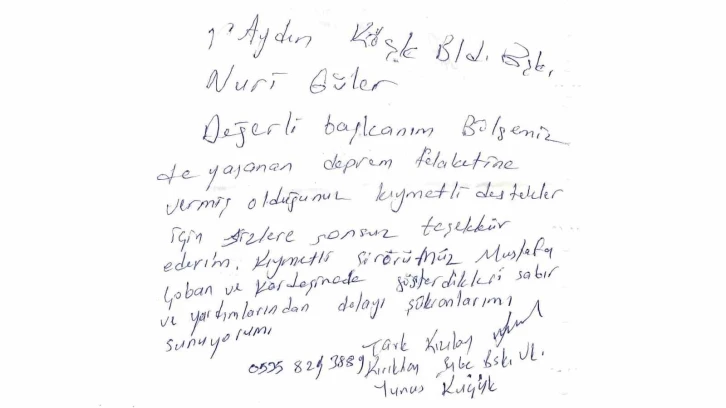 Aydın Köşk Bld. Bşk.
Nuri Güler
Değerli başkanım Bölgeniz
de yaşanan deprem felaketine
vermiş olduğunuz kıymetli destekler
için sizlere sonsuz teşekkür
ederim. Kıymetli Mustafa
Çoban ve Kardeşinede gösterdikleri sabır
ve yardımlarından dolayı şükranlarımı
sunuyorum
Türk Kızılay
Kırıkhan Şube Bşk. Vk.
Yunus Küçük